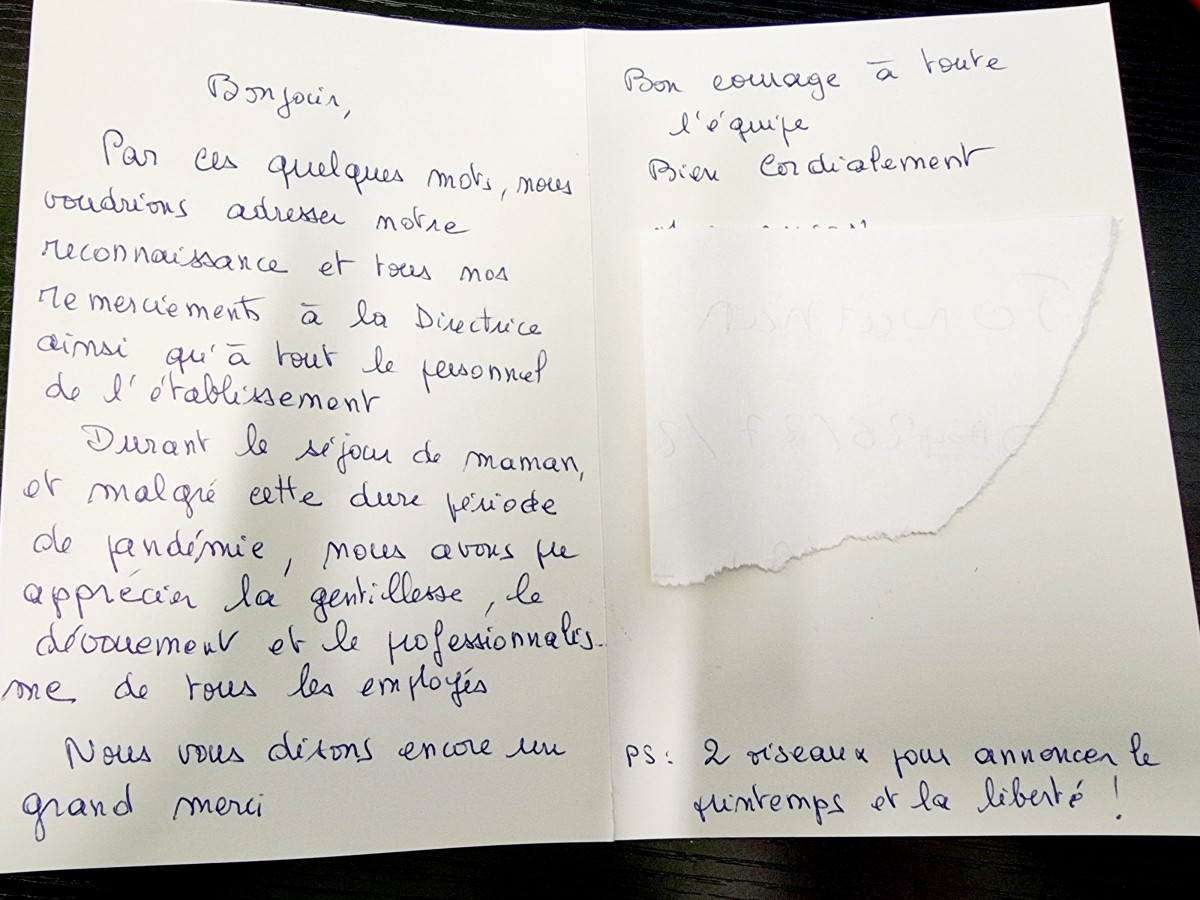 Bonjour,
Par ces quelques mots, nous
voudrions adresser notre
reconnaissance et tous nos
remerciements à la Directrice
ainsi qu'à tout le personnel
de l'établissement
Durant le séjour de maman,
et malgré cette dure période
de pandémie, nous avons pu
apprécier la gentillesse, le
dévouement et le professionnalis-
me de tous les employés
Nous vous disons encore un
grand merci
Bon courage à toute
l'équipe
Bien Cordialement
PS: 2 oiseaux pour annoncer le
printemps et la liberté !